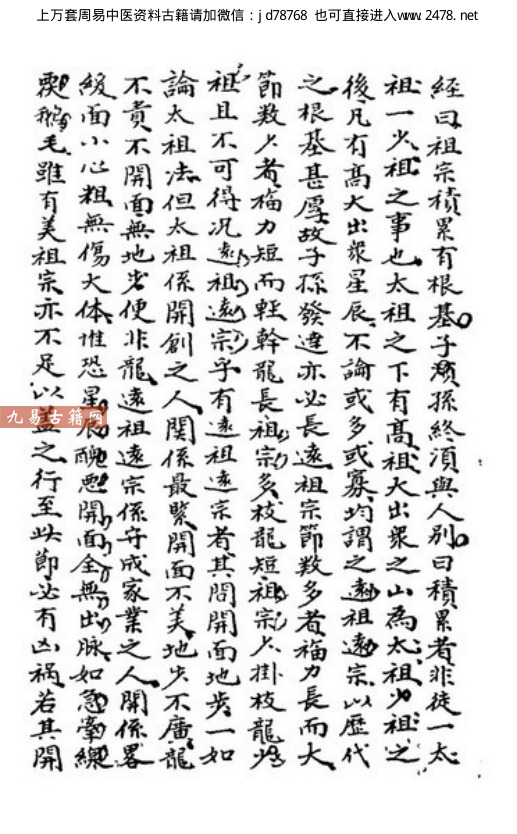 上万套周易中医资料古籍请加微信：jd78768 也可直接进入www.2478.net
經曰祖宗積累有根基子孫終須與人别曰積累者非徒一太
祖一少祖之事也太祖之下有高祖大出衆之山為太祖少祖之
後凡有高大出衆星辰不論或多或寡均謂之遠祖遠宗以歷代
之根基甚厚故子孫發達亦必長遠祖宗節数多者福力長而大
節数少者福力短而軽幹龍長祖宗多枝龍短祖宗少掛枝龍少
祖且不可得况遠祖遠宗乎有遠祖遠宗者其間開面地步一如
論太祖法但太祖係開創之人関係最緊開面不美地步不廣龍
不貴不開面無地步便非龍遠祖遠宗係守成家業之人関係畧
緩面小心粗無傷大体惟恐星辰醜惡開面全無出脉如急牽線
鵝毛雖有美祖宗亦不足以盖之行至此節必有凶禍若其開
九易古籍网